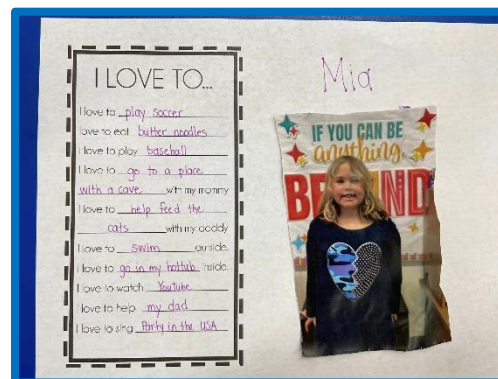 I LOVE TO...
I love to play soccer
love to eat butter noodles
I love to play baseball
I love to go to a place
with a cave with my mommy
I love to help feed the
cats with my daddy
I love to swim outside.
I love to go in my hottub inside.
I love to watch YouTube
I love to help my dad
I love to sing Party in the USA
Mia
IF YOU CAN BE
anything
BE KIND